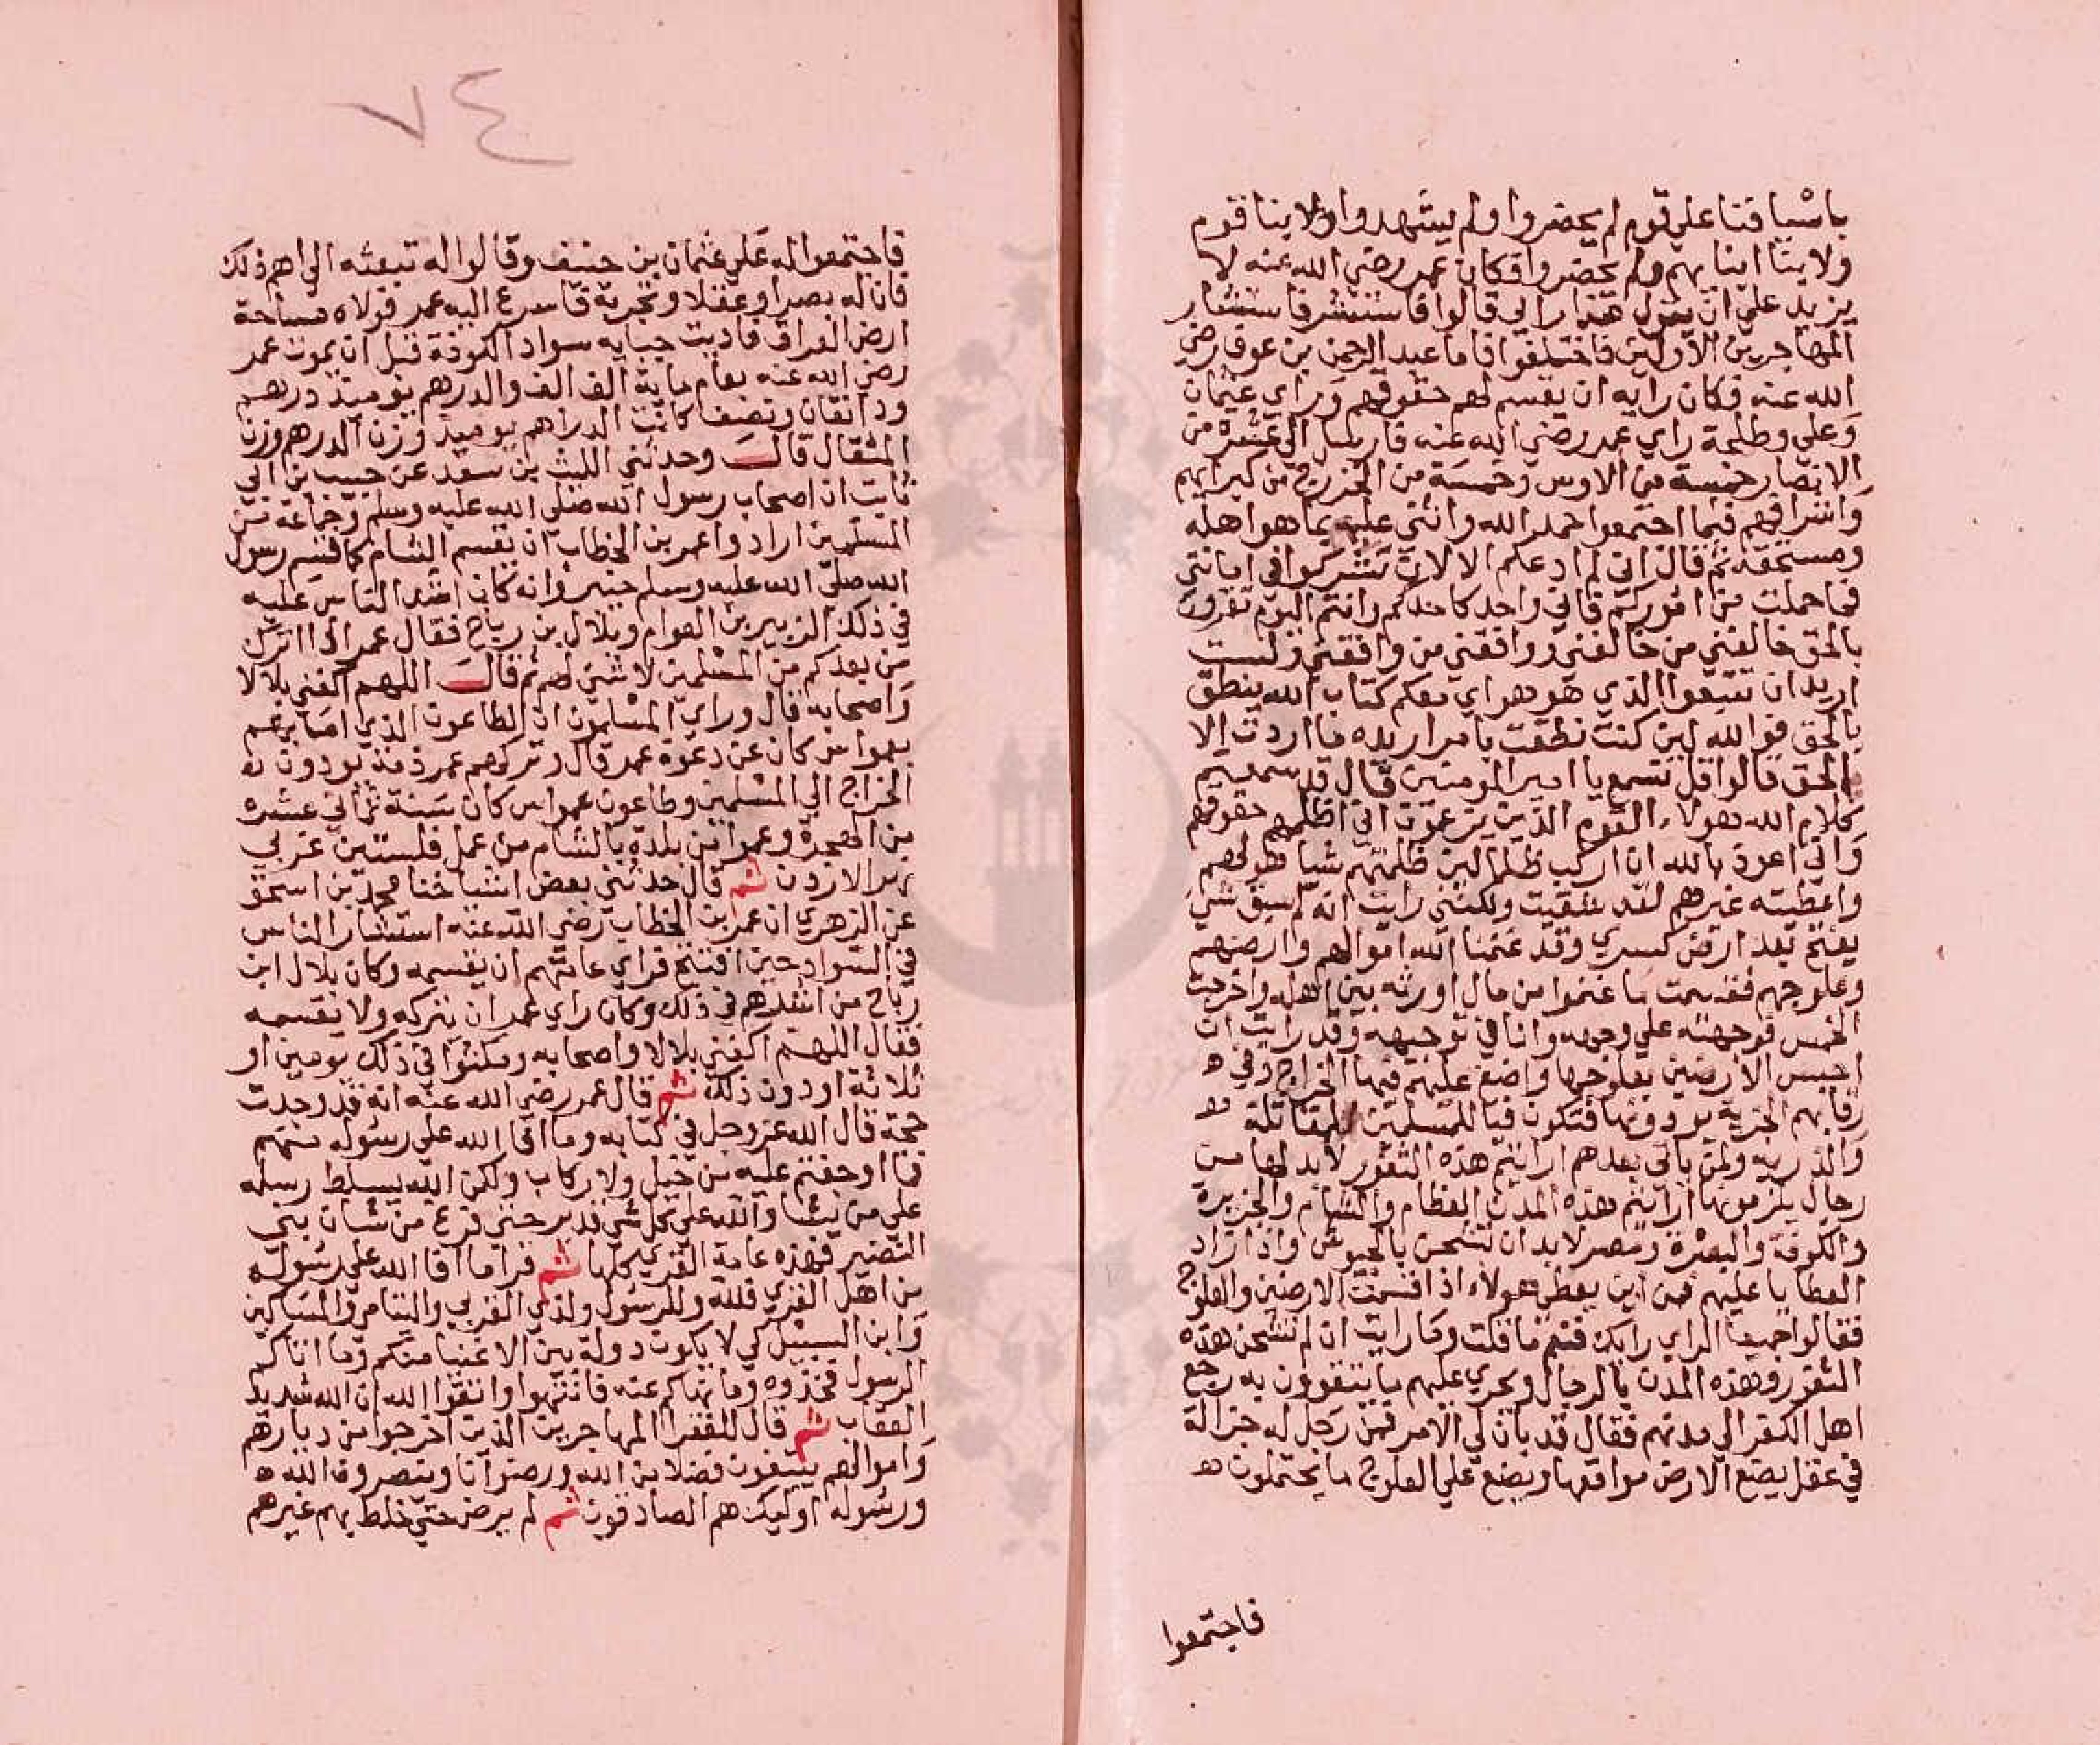 باسيافنا على قوم لم يحضروا ولم يشهدوا ولابنا قوم
ولابنا ابنايهم ولم يحضروا فكان عمر رضي الله عنه لا
يزيد على ان يقول هذا رايي قالوا فاستشر فاستشار
المهاجرين الاولين فاختلفوا فاما عبد الرحمن بن عوف رضي
الله عنه فكان رايه ان يقسم لهم حقوقهم وراي عثمان
وعلي وطلحة راي عمر رضي الله عنه فارسل الى عشرة من
الانصار خمسة من الاوس وخمسة من الخزرج من كبرايهم
واشرافهم فلما اجتمعوا حمد الله واثنى عليه بما هو اهله
ومستحقه ثم قال اني لم ادعكم الا لان تشركوا في امانتي
فيما حملت من اموركم فاني واحد كاحدكم وانتم اليوم تقرون
بالحق خالفني من خالفني ووافقني من وافقني ولست
اريد ان تتبعوا الذي هو هواي معكم كتاب الله ينطق
بالحق فوالله لين كنت نطقت بامر اريده ما اردت الا
الحق قالوا قل نسمع يا امير المومنين قال قد سمعتم
كلام الله هولاء القوم الذين يزعون اني اظلمهم حقوقهم
واني اعوذ بالله ان اركب ظلما لين ظلمتهم شيا هو لهم
واعطيته غيرهم لقد شقيت ولكنني رايت انه لم يبق شي
يفتح بعد ارض كسري وقد غنمنا الله اموالهم وارضهم
وعلوجهم فقسمت ما غنموا من مال اورثه بين اهله واخرجت
الخمس فوجهته علي وجهه وانا في توجيهه وقد رايت ان
احبس الارضين بعلوجها واضع عليهم فيها الخراج وفي ه
رقابهم الجزية يودونها فتكون فيا للمسلمين للمقاتلة ه
والذريه ولمن ياتي بعدهم ارايتم هذه الثغور لابد لها من
رجال يلزمونها ارايتم هذه المدن العظام والشام والجزيرة
والكوفة والبصرة ومصر لابد ان تشحن بالجيوش واذا زاد
العطايا عليهم فمن اين يعطى هولاء اذ اقسمت الارضين والعلوج
فقالوا جميعا الراي رايك فنعم ما قلت وما رايت ان لم تشحن هذه
الثغور وهذه المدن بالرجال وتجري عليهم ما يتقوون به رجع
اهل الكفر الي مدنهم فقال قد بان لي الامر فمن رجل له جزالة
في عقل يضع الارض مواقعها ويضع علي العلوج ما يحتملون ه
فاجتمعوا
٧٤
فاجتمعوا له على عثمان بن حنيف وقالوا له تبعثه الي اهم ذلك
فان له بصرا وعقلا وتجربة فاسرع اليه عمر فولاه مساحة
ارض العراق فاديت جبايه سواد الكوفة قبل ان يموت عمر
رضي الله عنه بعام ماية الف الف والدرهم يوميذ درهم
ودانقان ونصف كانت الدراهم يوميذ وزن الدرهم وزن
المثقال قال وحدثني الليث بن سعد عن حبيب بن ابي
ثابت ان اصحاب رسول الله صلي الله عليه وسلم وجماعة من
المسلمين ارادوا عمر بن الخطاب ان يقسم الشام كما قسم رسول
الله صلي الله عليه وسلم خيبر وانه كان اشد الناس عليه
في ذلك الزبير بن العوام وبلال بن رباح فقال عمر اذا اترك
من بعدكم من المسلمين لا شي لهم ثم قال اللهم اكفني بلالا
واصحابه قال وراي المسلمون ان الطاعون الذي اصابهم
بعمواس كان عن دعوة عمر قال وتركهم عمر ذمة يودون له
الخراج الي المسلمين وطاعون عمواس كان سنة ثماني عشره
من الهجرة وعمواس بلدة بالشام من عمل فلسطين غربي
نهر الاردن ثم قال حدثني بعض اشياخنا محمد بن اسحق
عن الزهري ان عمر بن الخطاب رضي الله عنه استشار الناس
في السواد حين افتتح فراي عامتهم ان يقسمه وكان بلال ابن
رباح من اشدهم في ذلك وكان راي عمر ان يتركه ولا يقسمه
فقال اللهم اكفني بلالا واصحابه ومكثوا في ذلك يومين او
ثلاثة او دون ذلك ثم قال عمر رضي الله عنه انه قد وجدت
حجة قال الله عز وجل في كتابه وما افا الله على رسوله منهم
فما اوجفتم عليه من خيل ولا ركاب ولكن الله يسلط رسله
على من يشا والله على كل شي قدير حتى فرغ من شان بني
النضير فهذه عامة القري كلها ثم قرا ما افا الله على رسوله
من اهل القري فلله وللرسول ولذي القربي واليتامي والمساكين
وابن السبيل كي لا يكون دولة بين الاغنيا منكم وما اتاكم
الرسول فخذوه وما نهاكم عنه فانتهوا واتقوا الله ان الله شديد
العقاب ثم قال للفقرا المهاجرين الذين اخرجوا من ديارهم
واموالهم يبتغون فضلا من الله ورضوانا وينصرون الله ه
ورسوله اوليك هم الصادقون ثم لم يرض حتي خلط بهم غيرهم